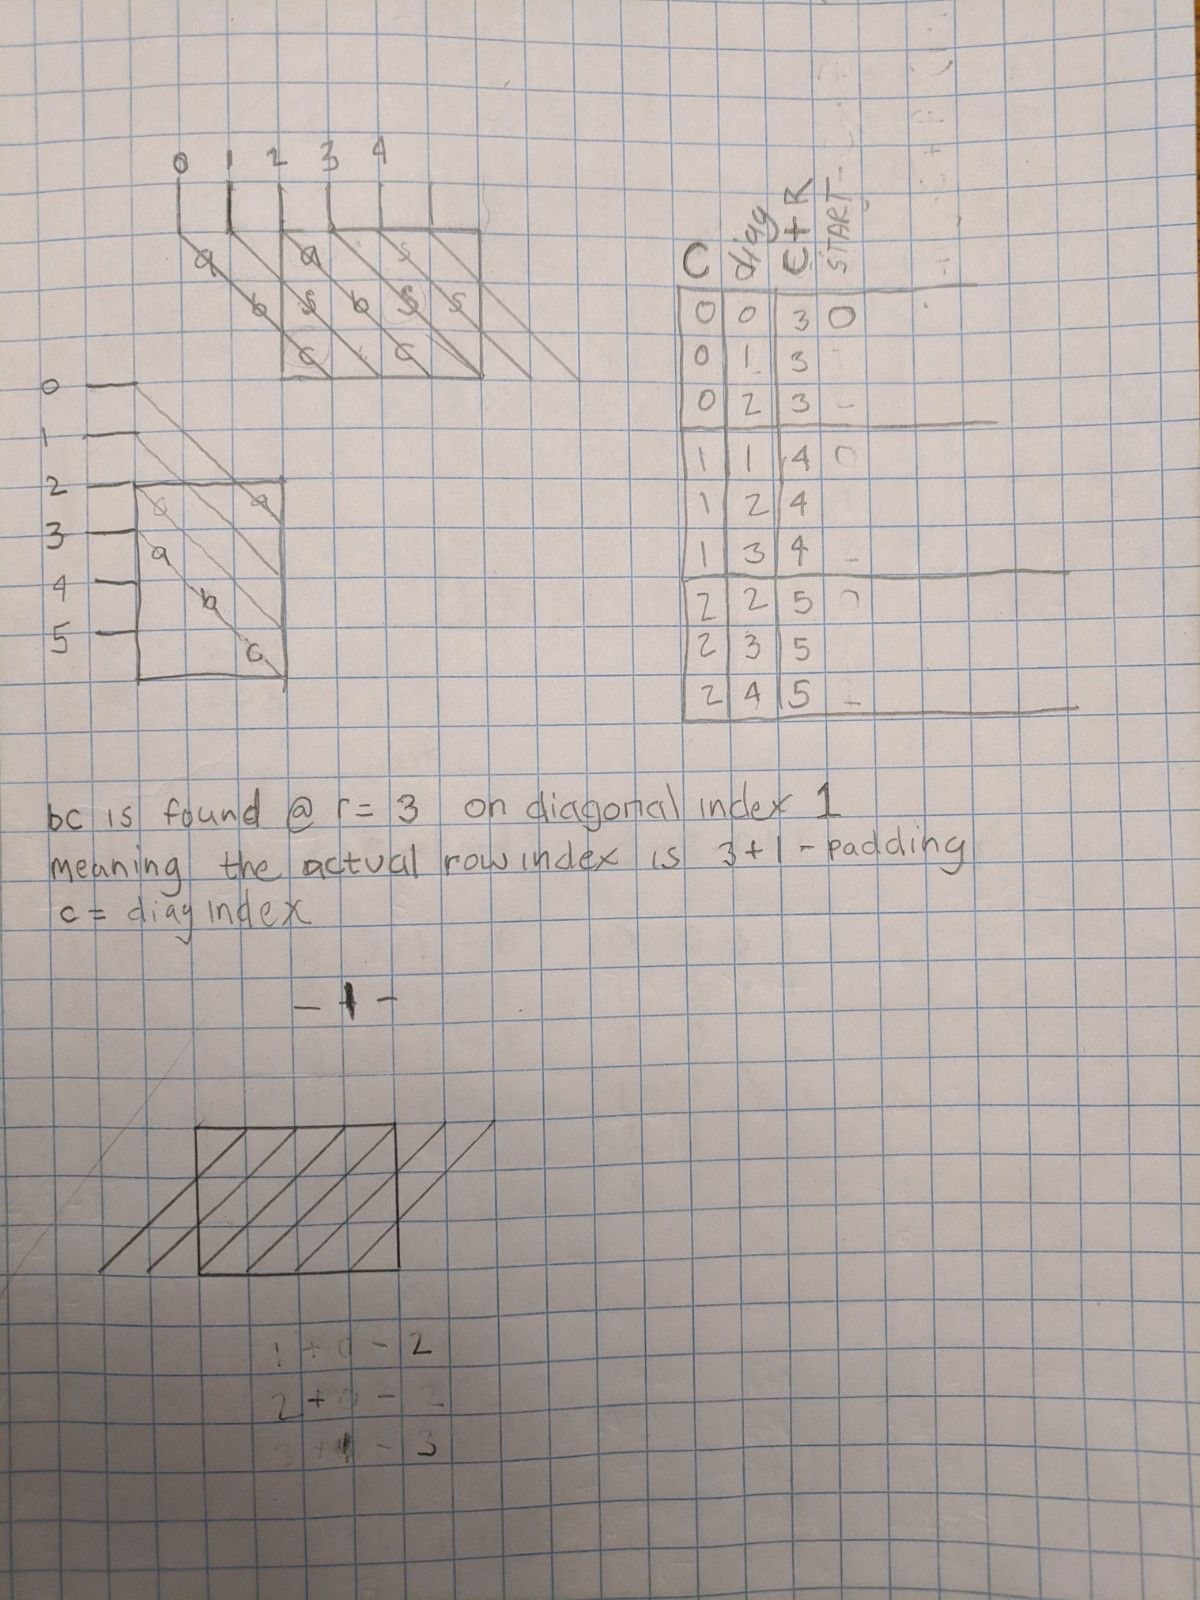 0 1 2 3 4
a a s
b s b s s
c c
0
1
2 a
3 a
4 b
5 c
C diag C+R START
0 0 3 0
0 1 3
0 2 3 -
1 1 4 0
1 2 4
1 3 4 -
2 2 5 0
2 3 5
2 4 5 -
bc is found @ r= 3 on diagonal index 1
meaning the actual row index is 3+1-padding
c= diag index
- 1 -
1 + 0 - 2
2 + 0 - 2
3 + 1 - 3